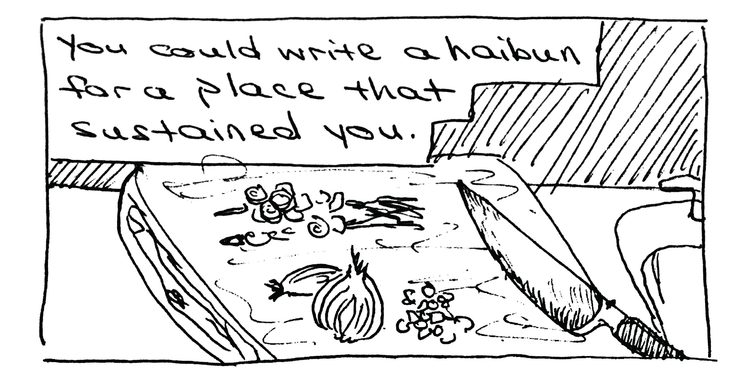 You could write a haibun
for a place that
sustained you.